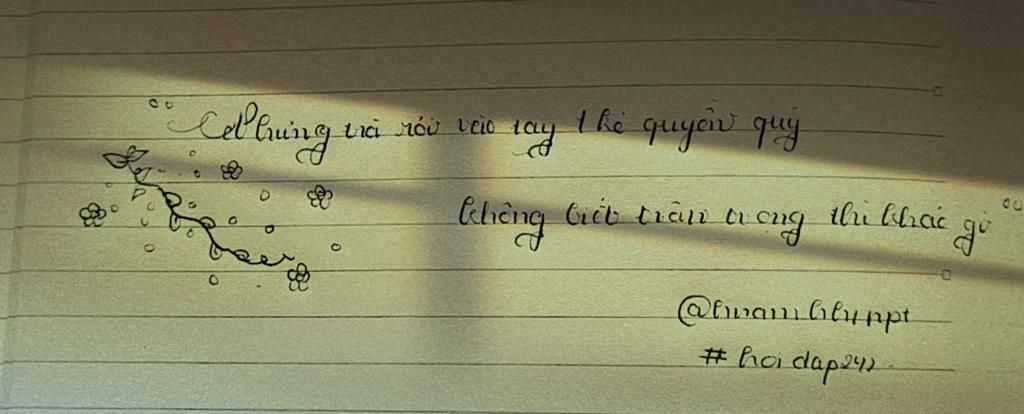 Nhưng mà rơi vào tay 1 kẻ quyền quý
không biết trân trọng thì khác gì
# hoidap247